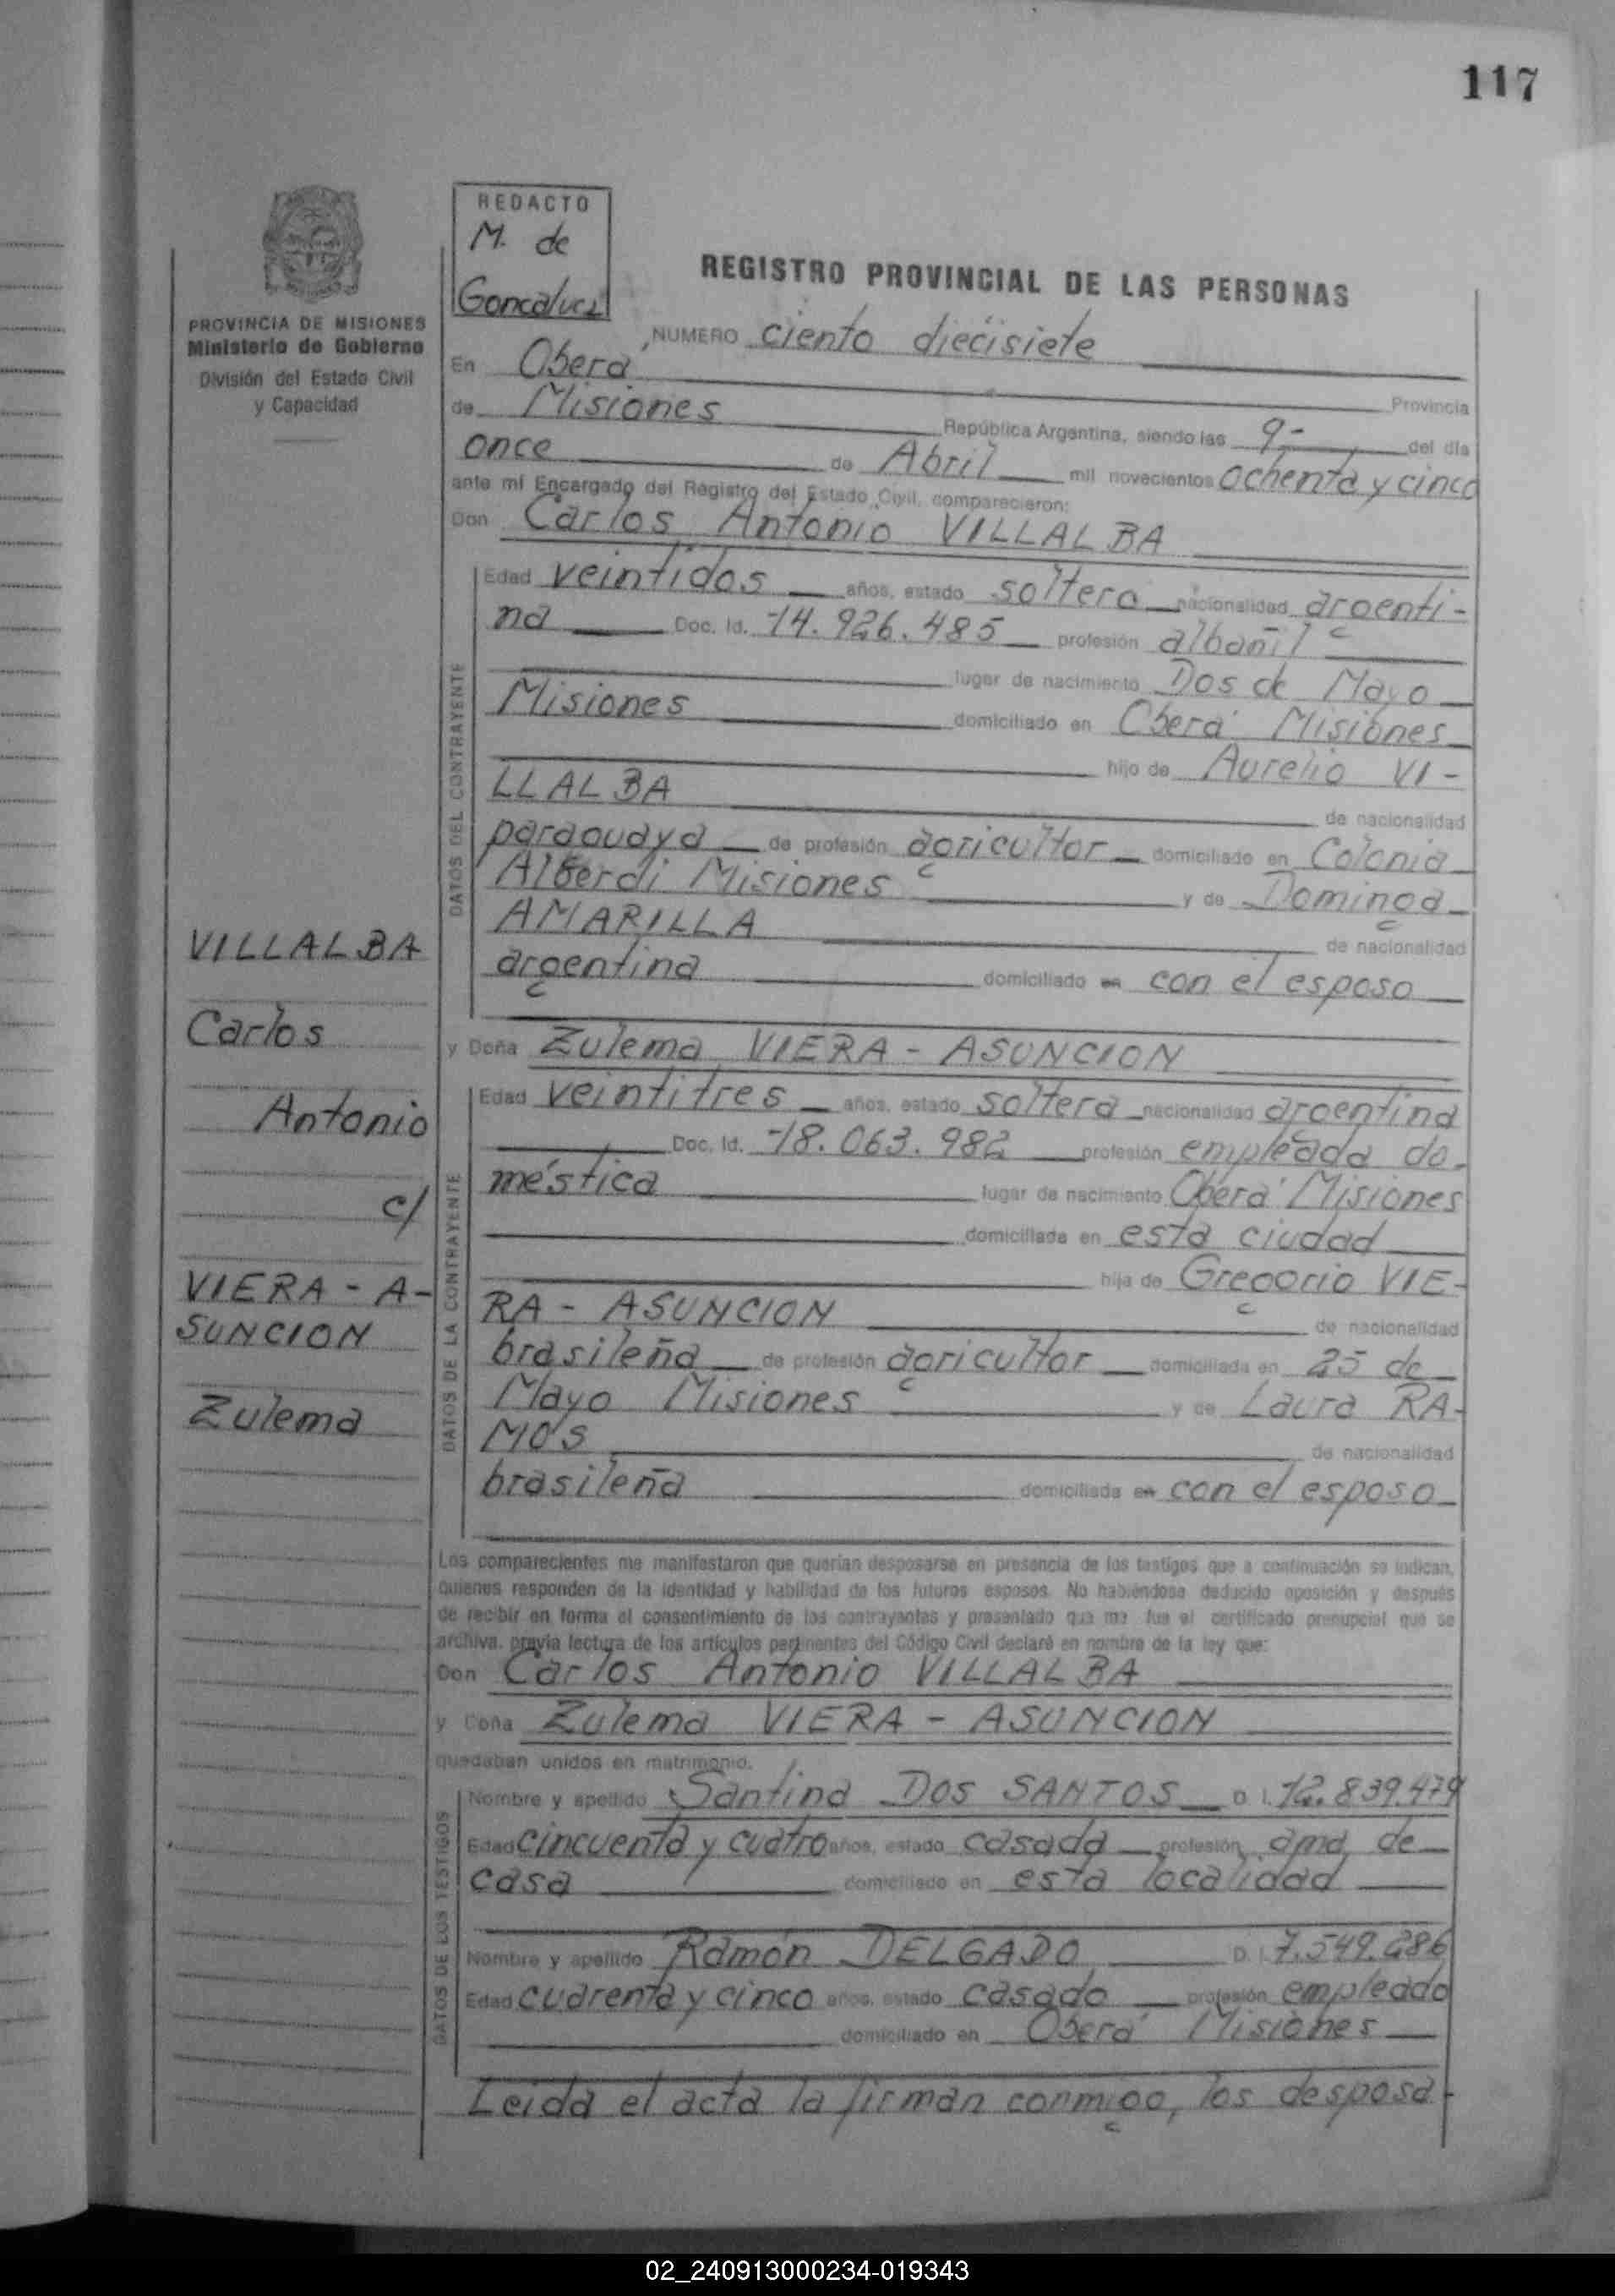 117
REDACTO
M. de
Goncalvez
PROVINCIA DE MISIONES
Ministerio de Gobierno
División del Estado Civil
y Capacidad
REGISTRO PROVINCIAL DE LAS PERSONAS
NUMERO ciento diecisiete
En Oberá
Provincia
de Misiones República Argentina, siendo las 9- del día
once de Abril mil novecientos ochenta y cinco
ante mí Encargado del Registro del Estado Civil, comparecieron:
Don Carlos Antonio VILLALBA
DATOS DEL CONTRAYENTE
Edad veintidos años, estado soltero nacionalidad argenti-
na Doc. Id. 14.926.485 profesión albañil
lugar de nacimiento Dos de Mayo
Misiones domiciliado en Oberá Misiones
hijo de Aurelio VI-
LLALBA de nacionalidad
paraguaya de profesión agricultor domiciliado en Colonia
Alberdi Misiones y de Dominga
AMARILLA de nacionalidad
argentina domiciliado en con el esposo
y Doña Zulema VIERA - ASUNCION
DATOS DE LA CONTRAYENTE
Edad veintitres años, estado soltera nacionalidad argentina
Doc. Id. 18.063.982 profesión empleada do-
méstica lugar de nacimiento Oberá Misiones
domiciliada en esta ciudad
hija de Gregorio VIE-
RA - ASUNCION de nacionalidad
brasileña de profesión agricultor domiciliada en 25 de
Mayo Misiones y de Laura RA-
MOS de nacionalidad
brasileña domiciliada en con el esposo
VILLALBA
Carlos
Antonio
c/
VIERA - A-
SUNCION
Zulema
Los comparecientes me manifestaron que querían desposarse en presencia de los testigos que a continuación se indican,
quienes responden de la identidad y habilidad de los futuros esposos. No habiéndose deducido oposición y después
de recibir en forma el consentimiento de los contrayentes y presentado que me fue el certificado prenupcial que se
archiva, previa lectura de los artículos pertinentes del Código Civil declaré en nombre de la ley que:
Don Carlos Antonio VILLALBA
y Doña Zulema VIERA - ASUNCION
quedaban unidos en matrimonio.
DATOS DE LOS TESTIGOS
Nombre y apellido Santina DOS SANTOS D.I. 12.839.479
Edad cincuenta y cuatro años, estado casada profesión ama de
casa domiciliado en esta localidad
Nombre y apellido Ramón DELGADO D.I. 7.549.286
Edad cuarenta y cinco años, estado casado profesión empleado
domiciliado en Oberá Misiones
Leida el acta la firman conmigo, los desposa-
02_240913000234-019343